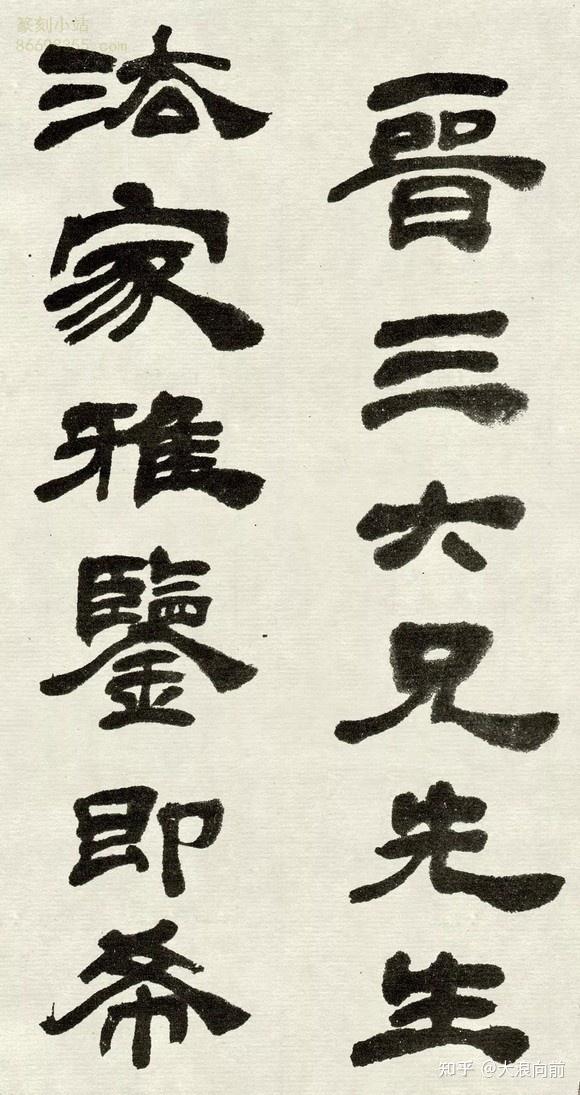 晉三六兄先生
法家雅鑒即希
篆刻小站
知乎 @大浪向前